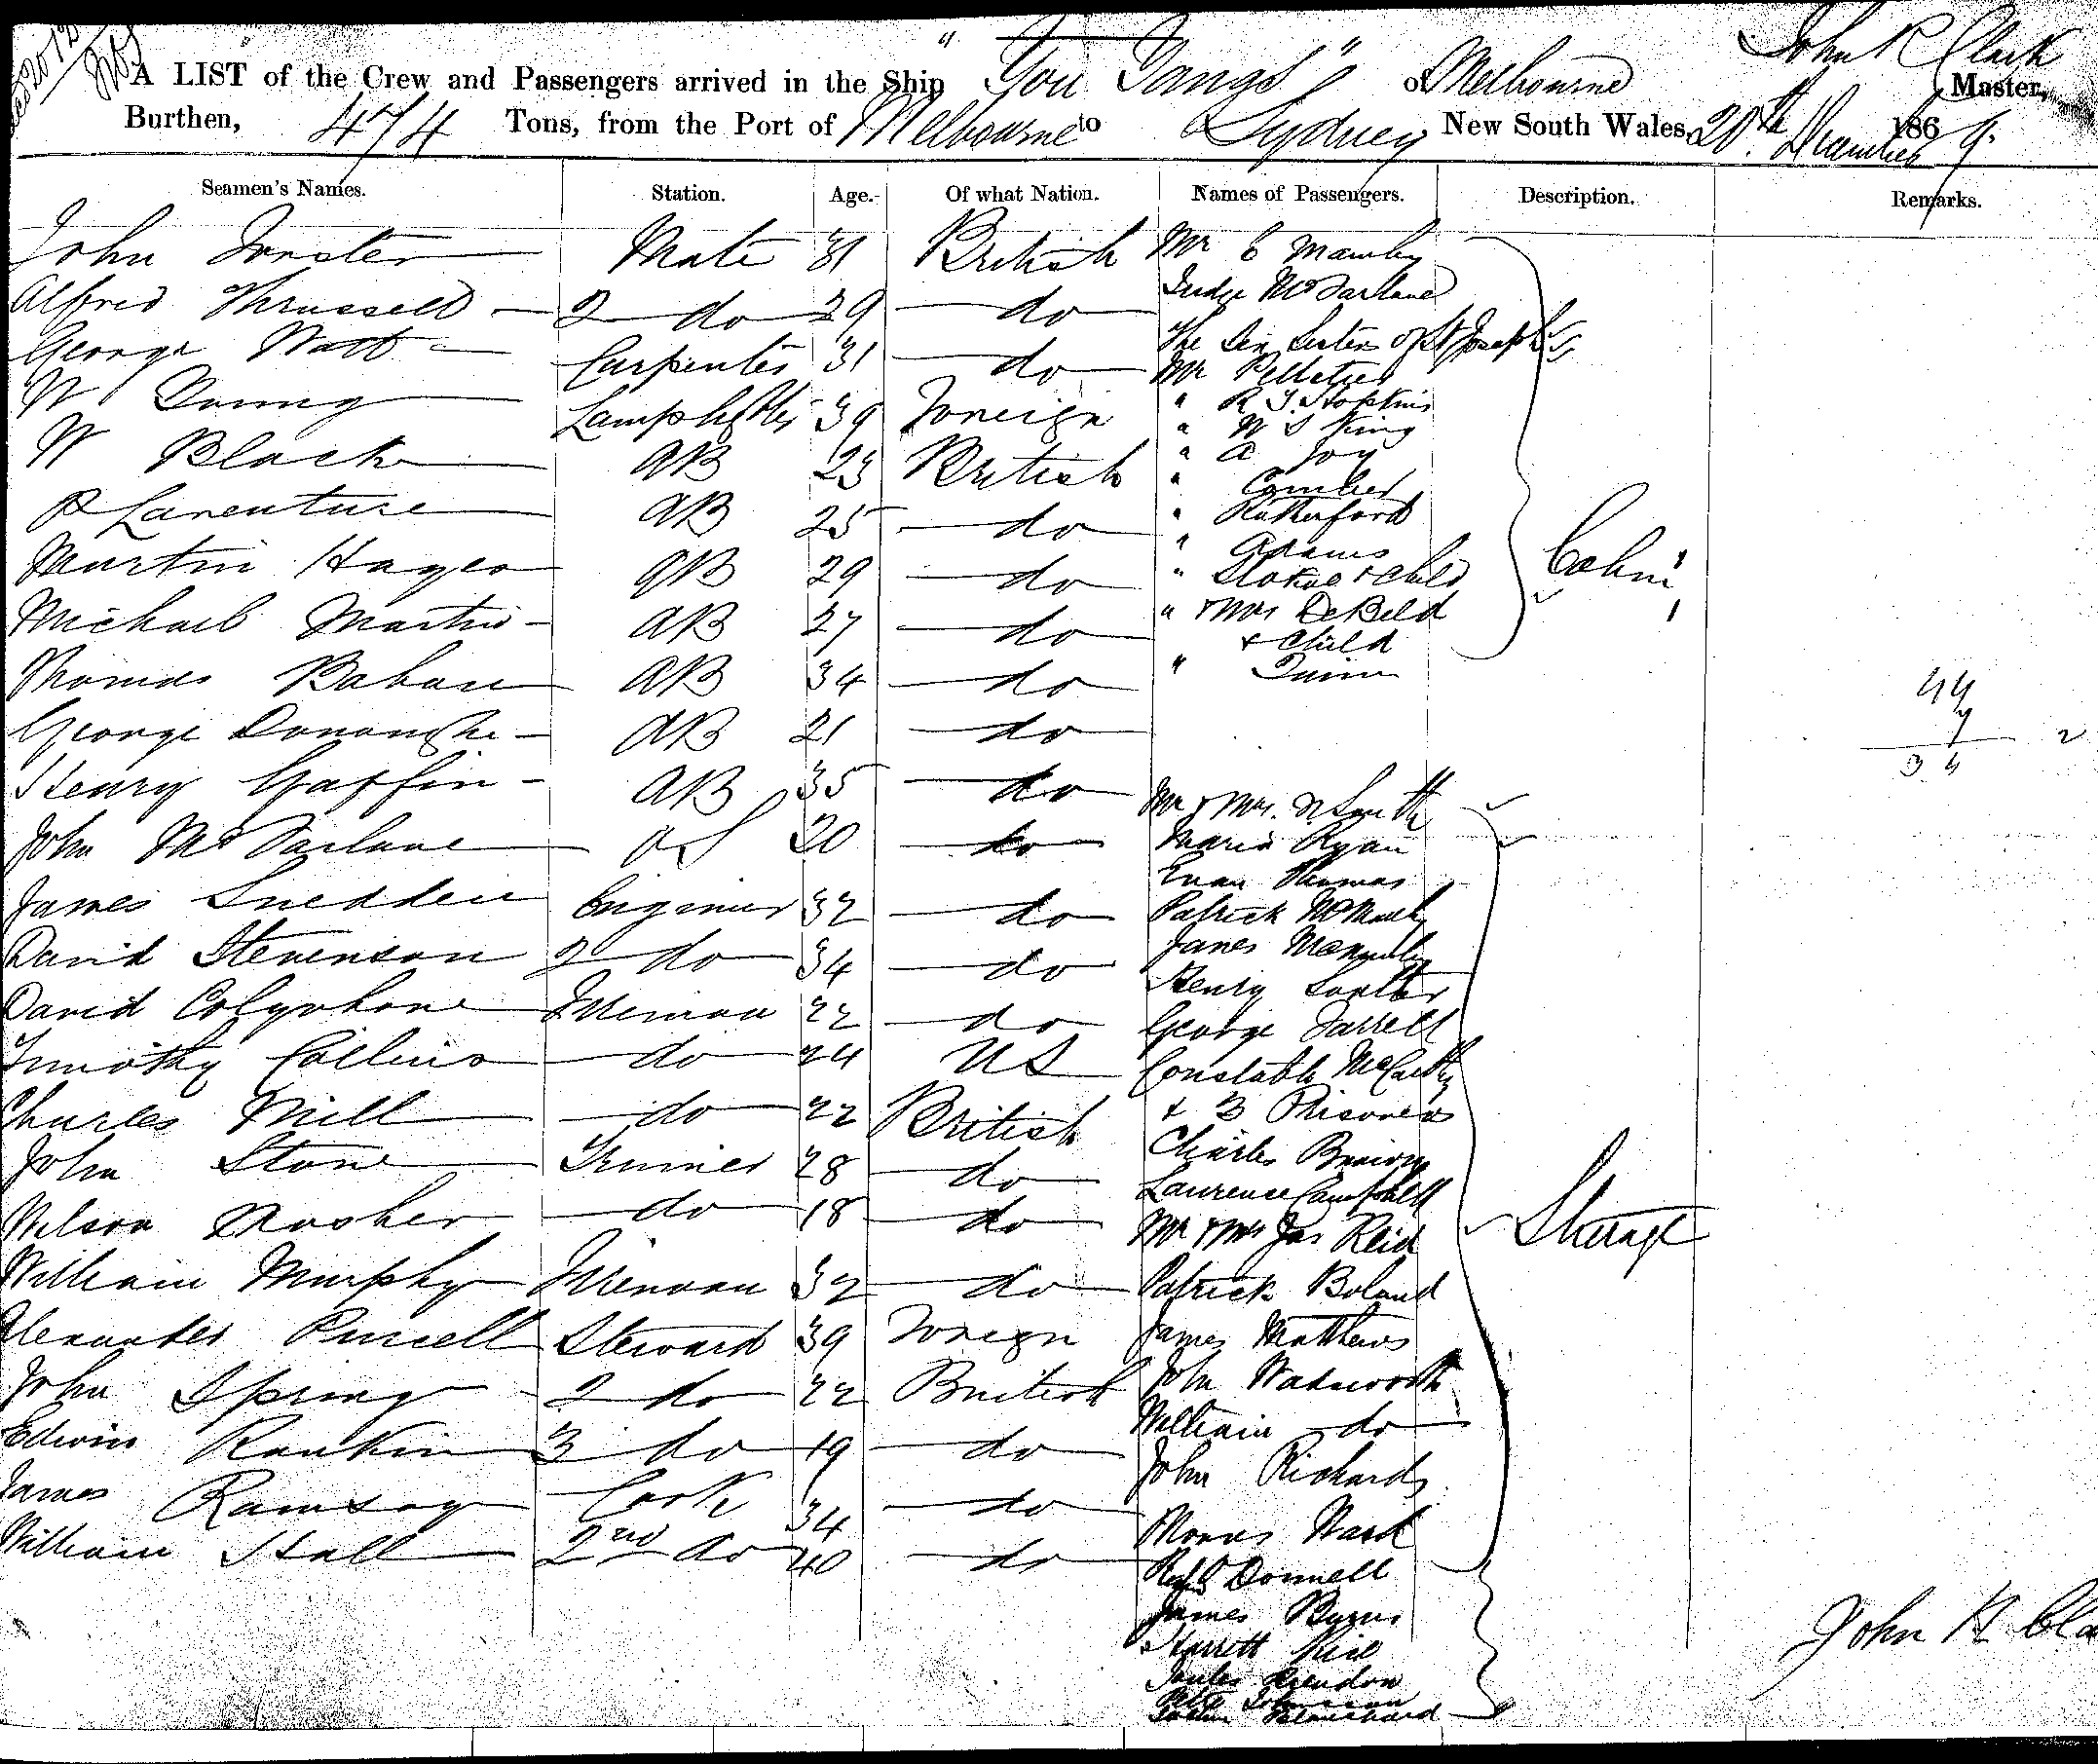 A LIST of the Crew and Passengers arrived in the Ship "You Yangs" of Melbourne John R Clark Master,
Burthen, 474 Tons, from the Port of Melbourne to Sydney New South Wales, 20th December 1869.
Seamen's Names. Station. Age. Of what Nation. Names of Passengers. Description. Remarks.
John Forster Mate 31 British Mr C Mawby
Alfred Thrussell 2 do 29 do Judge McFarland
George Watt Carpenter 31 do The Six Sisters of St Josephs
W Young Lamplighter 39 Foreign Mr Pelletier
" R Hopkins
W Black AB 23 British " W S King
" A Joy
"
P Laventure AB 25 do " Rutherford
" Adams
Martin Hayes AB 29 do " & Child Cabin
Michael Martin AB 27 do " & Mrs DeBeld
& Child
Thomas AB 34 do " Quinn
44
George Donanghe AB 21 do
34
Henry Gaffin AB 35 do Mr & Mrs Smith
John McFarlane OS 20 do Maria Ryan
Evan Thomas
James Snedden Engineer 32 do Patrick
David Stevenson 2 do 34 do James
Henry
David Colquhone Fireman 22 do George Farrell
Timothy Collins do 24 US Constable McCarthy
Charles Mill do 22 British & 3 Prisoners
John Stone Trimer 28 do Charles
Laurence Campbell
Nelson do 18 do Mr & Mrs Jas Reid Steerage
William Murphy Fireman 32 do Patrick Boland
Alexander Purcell Steward 39 Foreign James Matthews
John Spring 2 do 22 British John Wadsworth
William do
Edwin Rankin 3 do 19 do John Richards
James Ramsay Cook 34 do Ward
William Hall 2nd do 40 do Donnell
James Byrns
John R Cla
Johnson
Blanchard